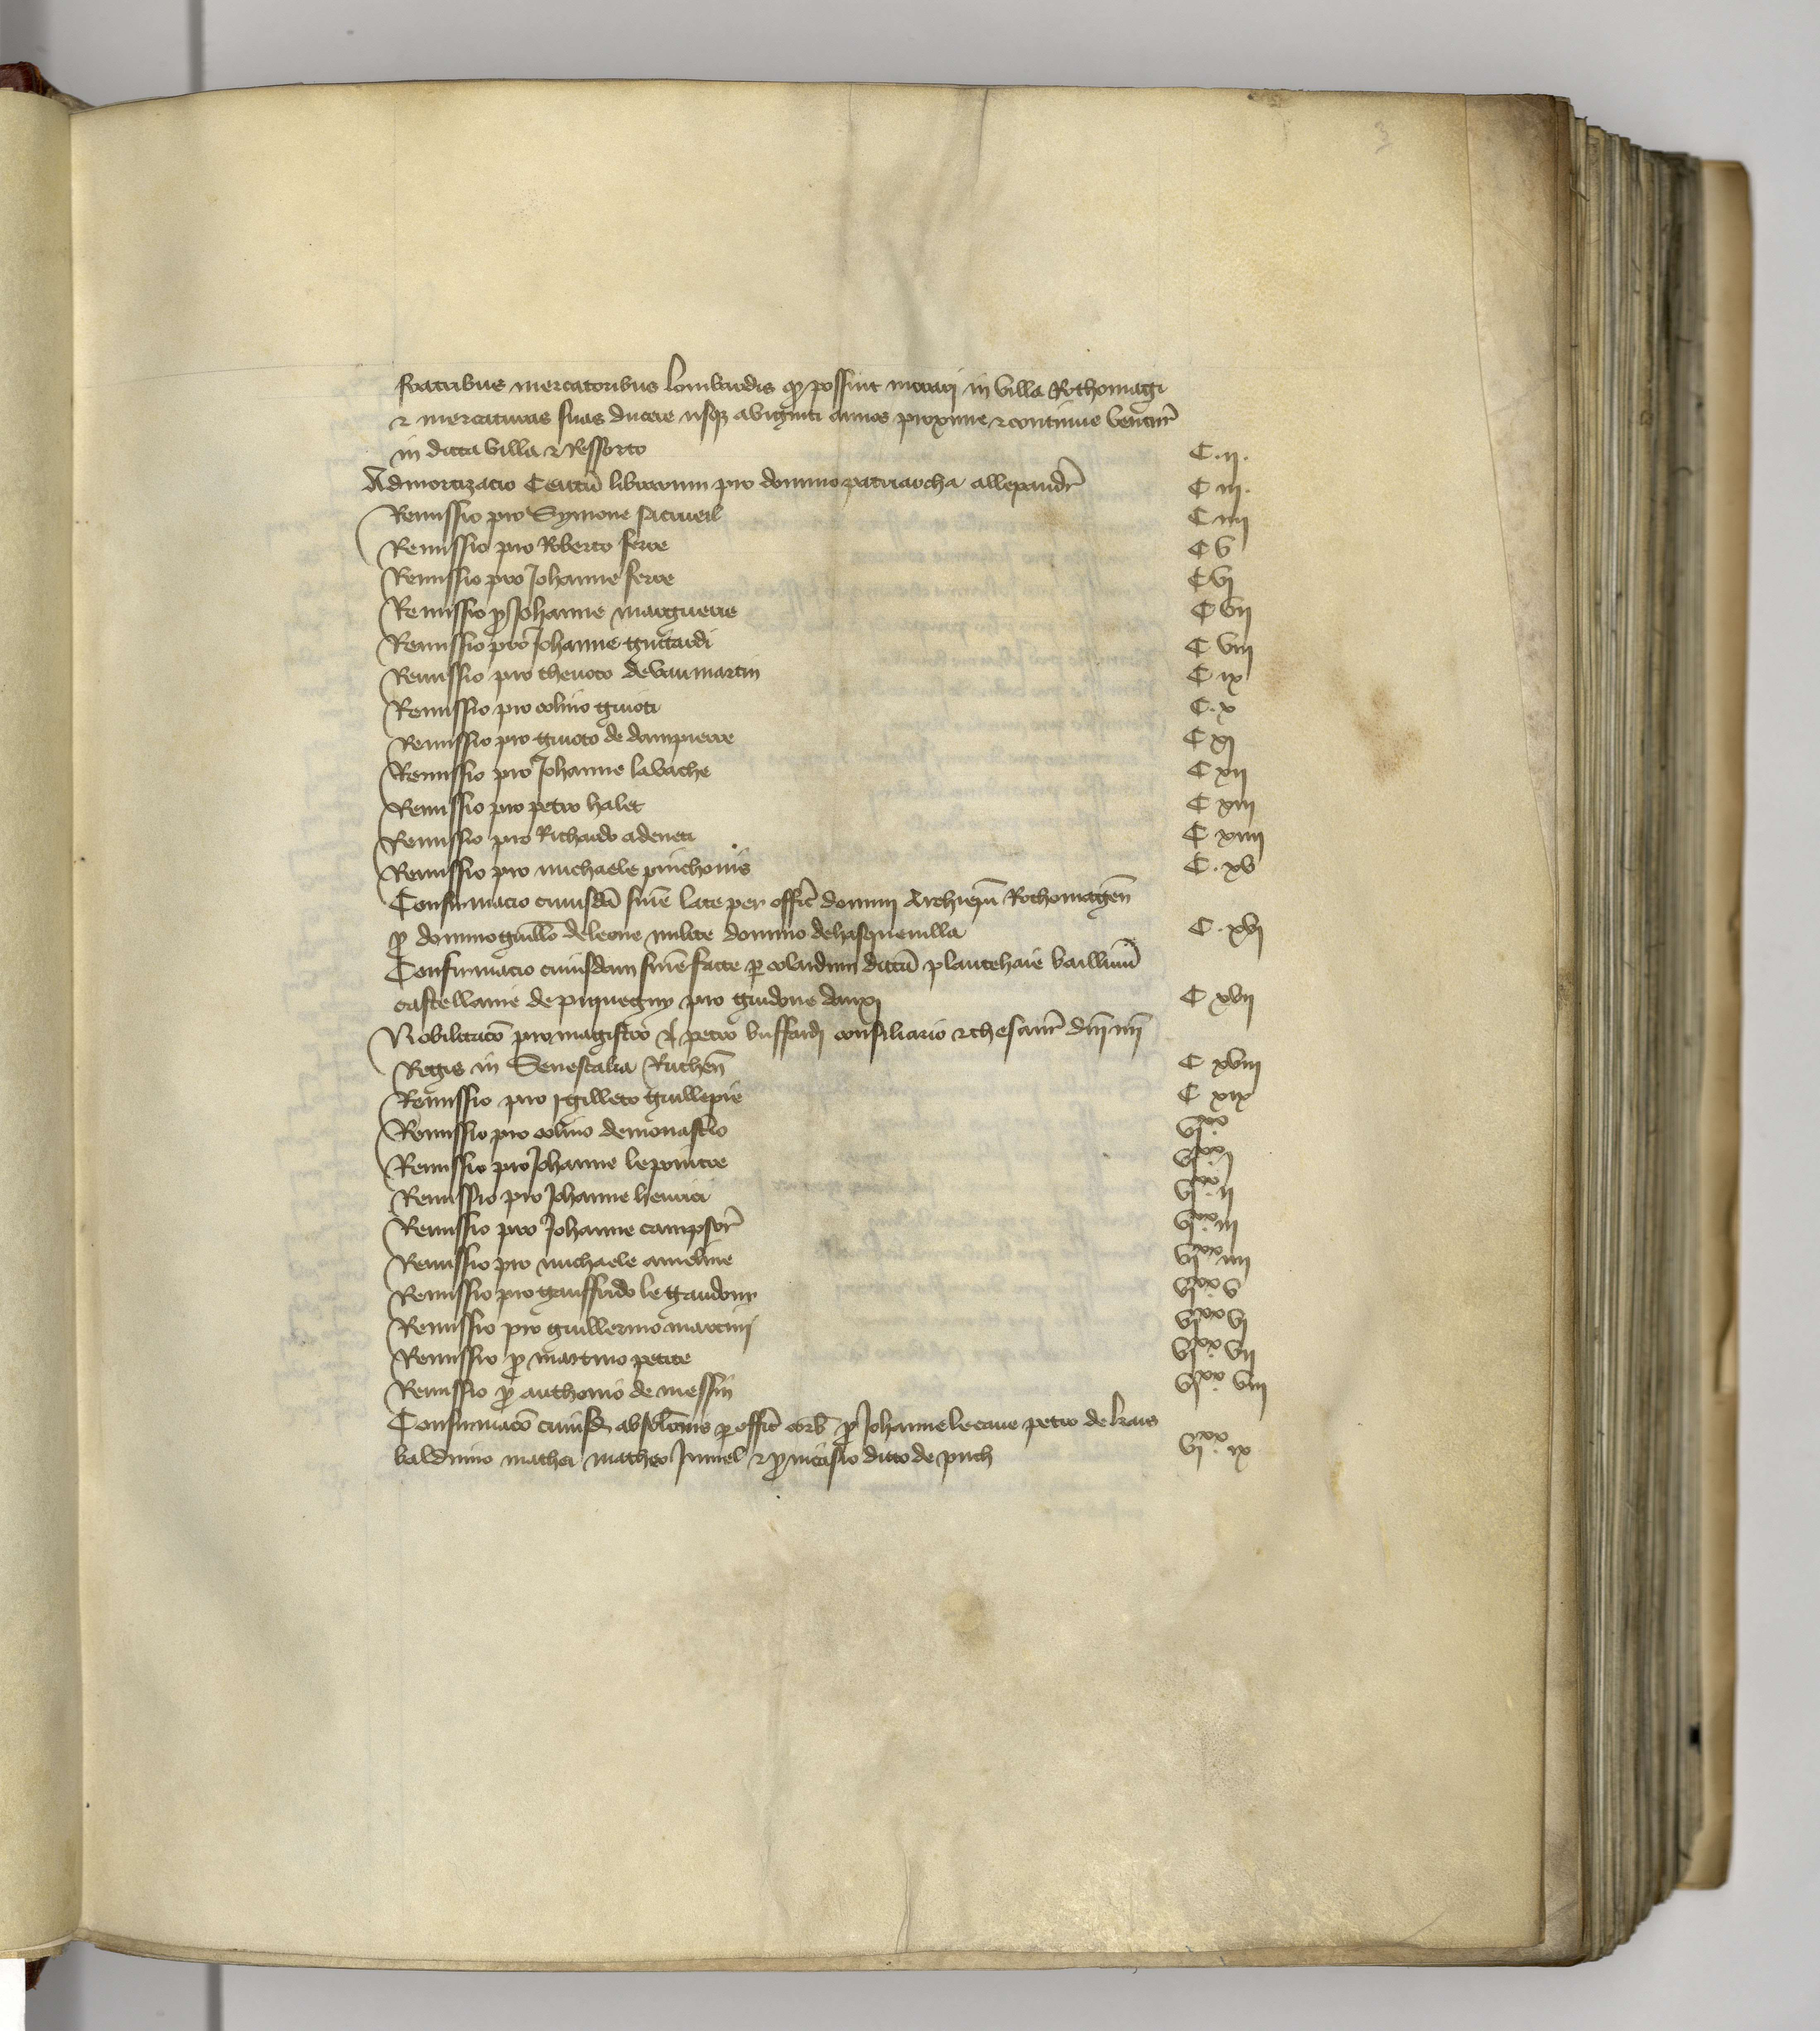 3
fratribus mercatoribus lombardis qͥ possint morarj in villa Rothomagi
⁊ mercaturas suas ducere usqꝫ ad viginti annos proxime ⁊ continue ventur̄
in dicta villa ⁊ Ressorto C. ij.
Admortizacio Centū librarum pro domino patriarcha allexandr̄ C iij.
Remissio pro Symone C iiij
Remissio pro Roberto ferre C v
Remissio pro Johanne ferre C vj
Remissio p̲ Johanne marguerie C vij
Remissio pro Johanne guitardi C viij
Remissio pro thenoto de vaumartin C ix
Remissio pro colino guioti C. x
Remissio pro guioto de dampierre C xj
Remissio pro Johanne lavache C xij
Remissio pro petro halet C xiij
Remissio pro Richardo adeneti C xiiij
Remissio pro michaele pinchonis C. xv
Confirmacio cuiusdā sn̄ie late per offic̄ domini Archiep̄i Rothomagen̄
p̲ domino guill̄o de leone milite domino de hasquenilla C. xvj
Confirmacio cuiusdam sn̄ie facte p colardum dictū plantehaie baillivū
castellanie de piquegny pro guidone C xvij
Nobilitacō pro magistro petro buffardj consiliario ⁊ thesaur̄ dn̄i nr̄i
Regis in Senescalia Ruthen̄ C xviij
Remissio pro gilleto guillepie C xix
Remissio pro colino de monast̄io vjˣˣ.
Remissio pro Johanne le pointre vjˣˣ j
Remissio pro Johanne henrici vjˣˣ. ij
Remissio pro Johanne campsor̄ vjˣˣ. iij
Remissio pro michaele ameline vjˣˣ iiij
Remissio pro gauffrido le vjˣˣ. v
Remissio pro guillermo martinj vjˣˣ vj
Remissio p̲ martino petite vjˣˣ. vij
Remissio p̲ anthonio de messin vjˣˣ. viij
Confirmacō cuiusd absolōnis p offic̄ p̲ Johanne le cave petro de
balduino mathei matheo ⁊ p̲ nicasio dicto de puch vjˣˣ. ix